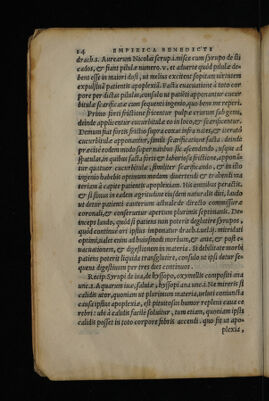 14 EMPIRICA BENEDICTI
drach.1. Aurearum Nicolai scrup.1. misce cum syrupo de sti
cados, & fiant pilulæ numero v. et aduerte quod pilulæ de
bent esse in maiori dosi, ut melius excitent sopitam uirtutem
expulsiuã patientis apoplexiã. Facta euacuatione à toto cor
pore per dictas pilulas, consulo ut patiẽti apponantur cucur
bitulæ scarificatæ cum sequenti ingenio, quo bene me reperi.
Primo fieri frictiones in pulpis crurium
deinde applicentur cucurbitulæ eo in loco, & scarificentur.
Demum fiat fortis frictio supra coxas infra nates, & iterato
cucurbitulæ apponantur, simili scarificatione facta: deinde
præcise eodem modo superius ascendendo, usque ad
spatulas, in quibus facta forti & laboriosa frictione, apponan
tur quatuor cucurbitulæ, simul & scarificentur, & in isto
ingenio habebit optimum modum diuertendi & trabendi ma
teriam à capite patientis apoplexiam. His omnibus peractis,
& si in eadem ægritudine natur alit diu, laudo
ut detur patienti cauterium actuale de directo commissuræ
coronalis, & conseruetur apertum plurimis septimanis. De
inceps laudo, quod si patiens tum poterit deglutire syrupos,
quod continue ori ipsius imponatur drach.1. uel.ij. mitridati
optimi, ualet enim ad huiusmodi morbum, & ante, & post e-
uacuationem, & digestionem in materia. Si debilitate morbi
patiens poterit liquida transglutire, consulo ut ipsi detur se
quens digestiuum per tres dies continuos.
Recip. Syrupi de iua, de hyssopo, oxymellis compositi ana
unc.1. Aquarum iuæ, saluiæ, hyssopi ana unc.1. Ne mireris si
calidis utor, quoniam ut plurimum materia, uelut coniuncta
causa ipsius apoplexia, est pituitosus humor replens caua ce
rebri: ubi à calore facile soluitur, tum etiam, quoniam ipsis
calidis posset in toto corpore febris accendi. quo fit ut apo-
plexia,